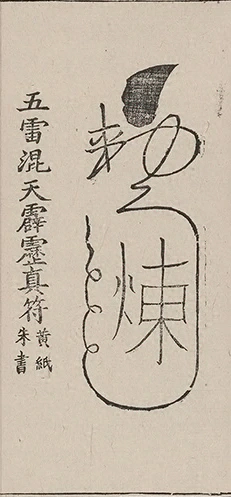 煉
五雷混天霹靂真符
黃紙
朱書